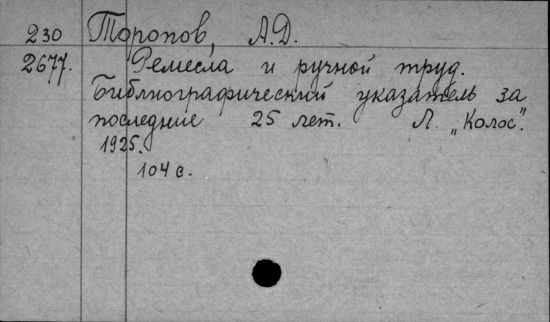 230 Торопов, А.Д.
2677. Ремесла и ручной труд.
Библиографический указатель за
последние 25 лет. Л. „Колос".
1925.
104 с.